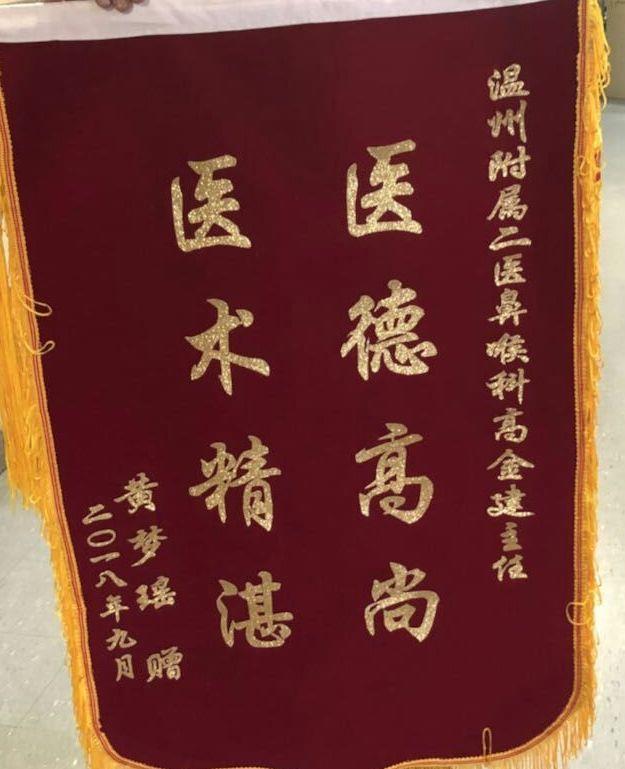 温州附属二医鼻喉科高金建主任
医德高尚
医术精湛
黄梦瑶 赠
二〇一八年九月